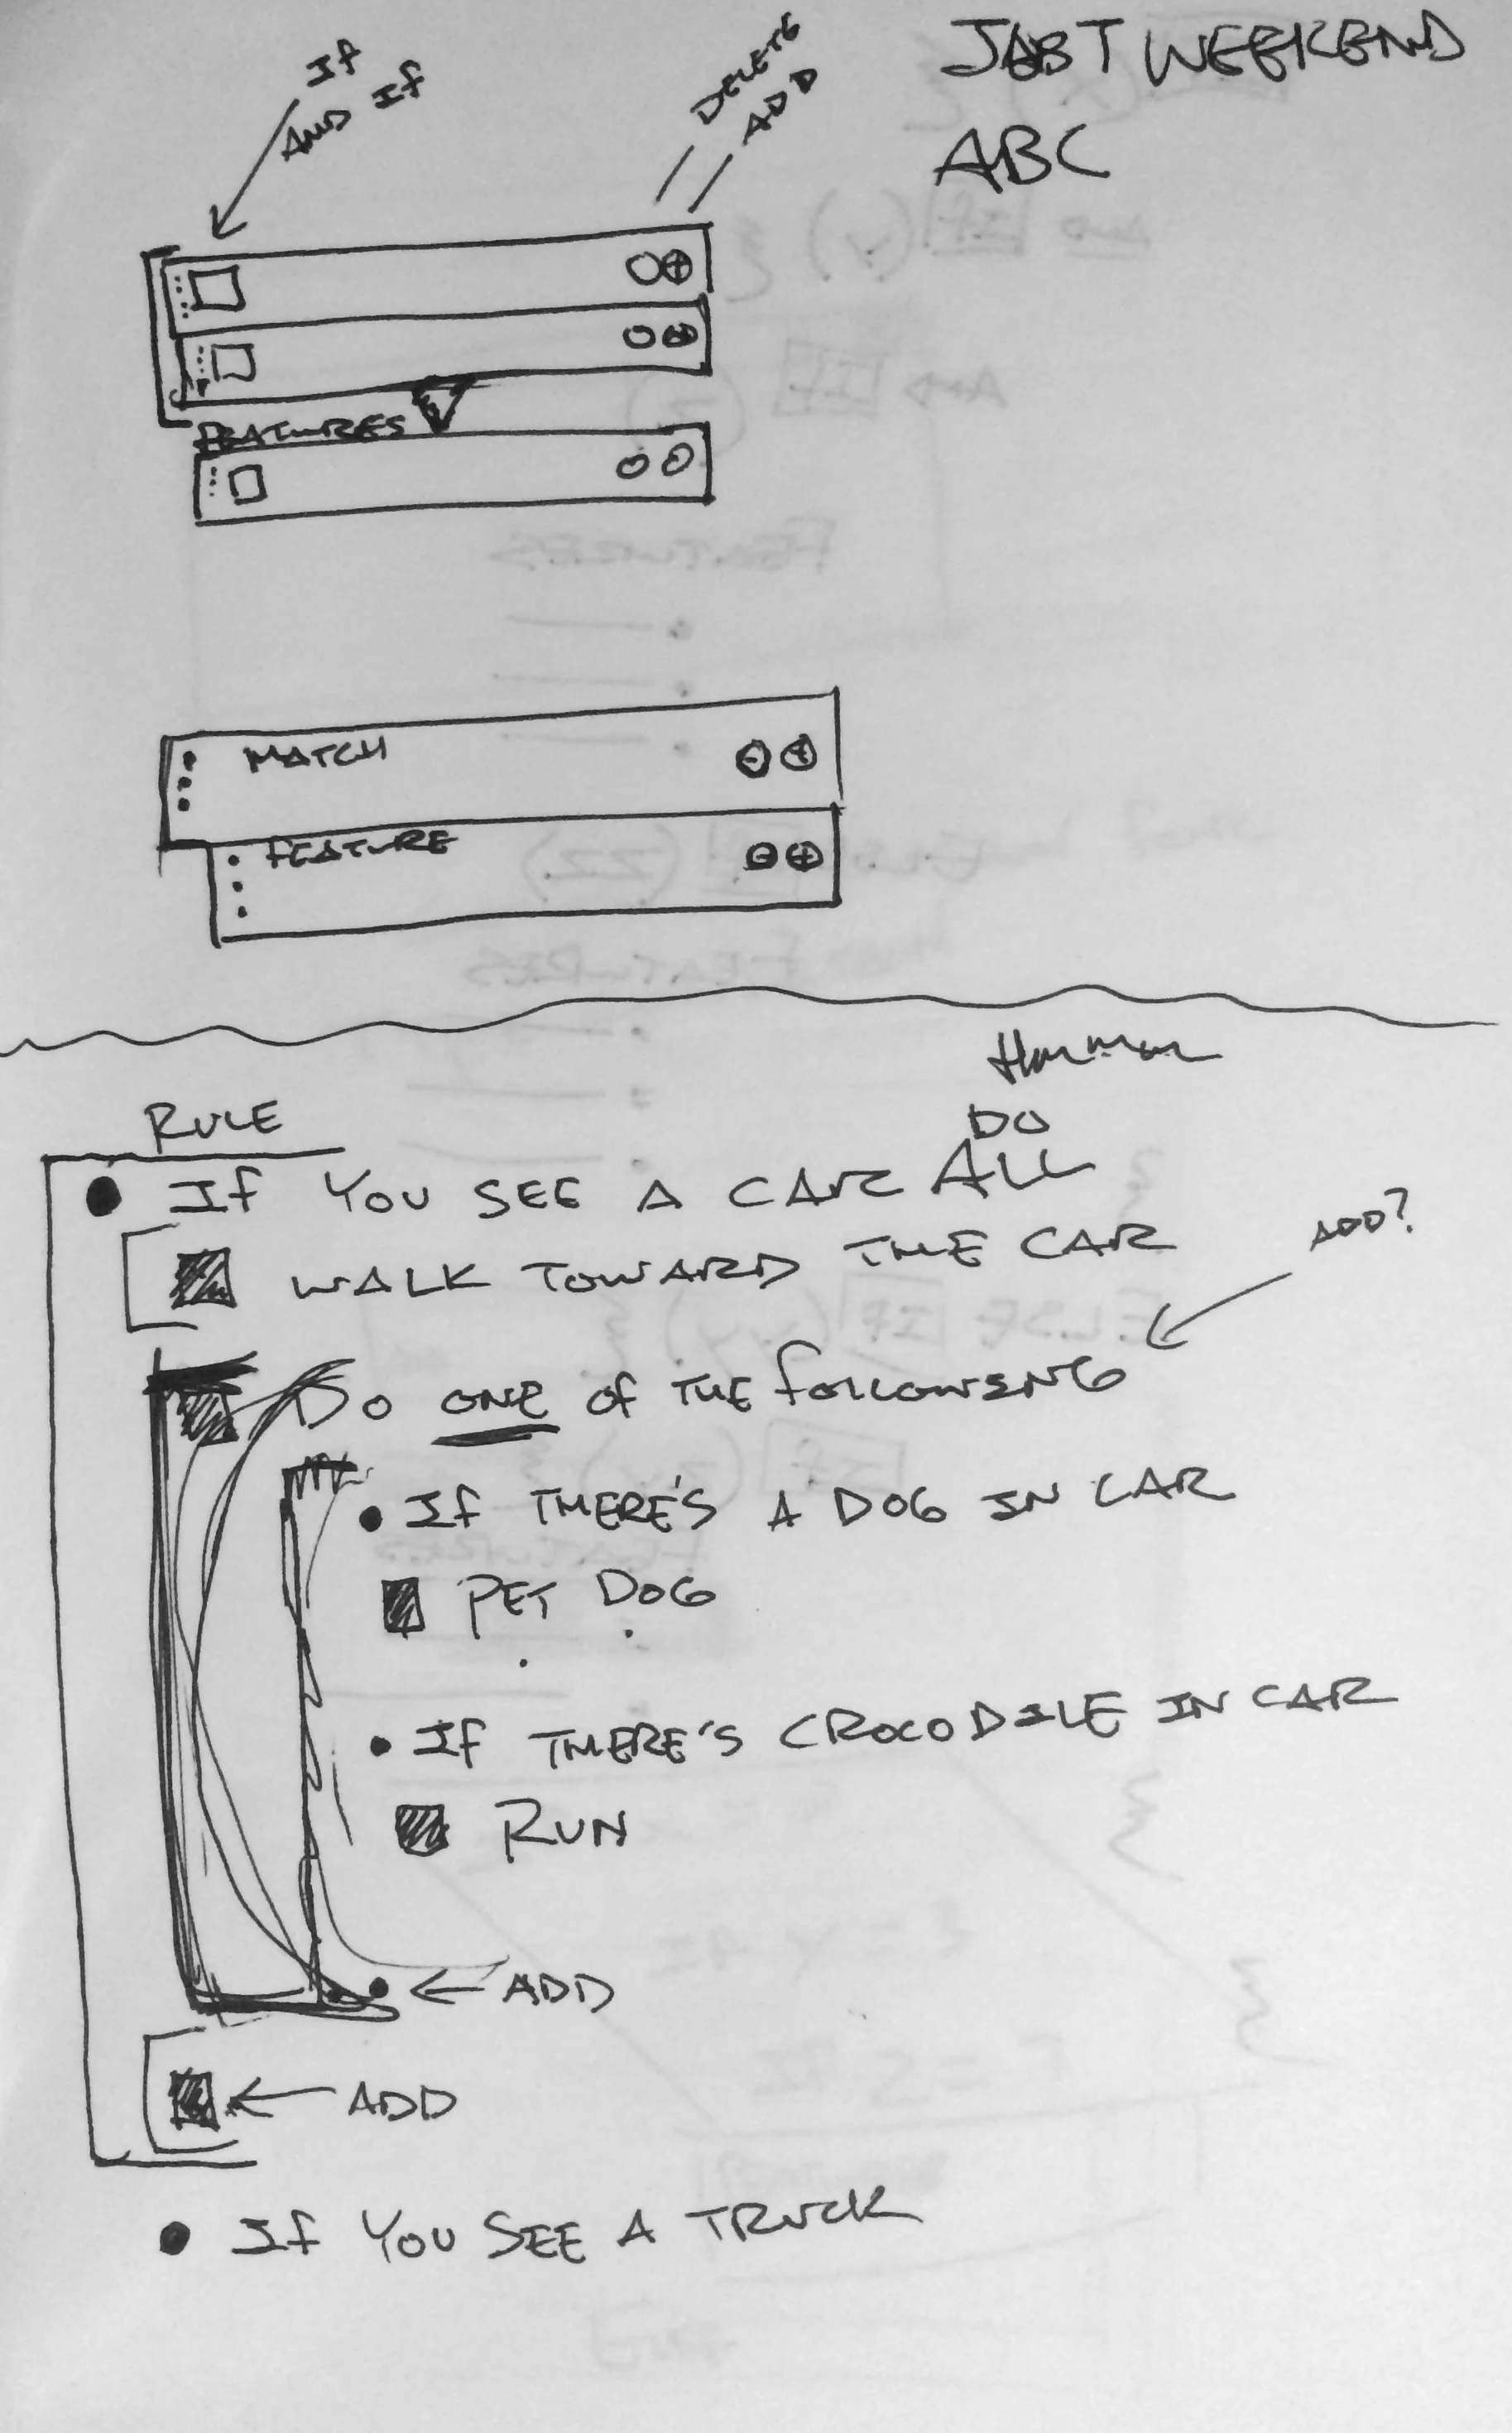 If
AND If
DELETE
ADD
WEEKEND
ABC
FEATURES
MATCH
FEATURE
RULE
DO
If YOU SEE A CAR ALL
WALK TOWARD THE CAR
ADD?
DO ONE Of THE fOLLOWING
If THERE'S A DOG IN CAR
PET DOG
If THERE'S CROCODILE IN CAR
RUN
ADD
ADD
If YOU SEE A TRUCK